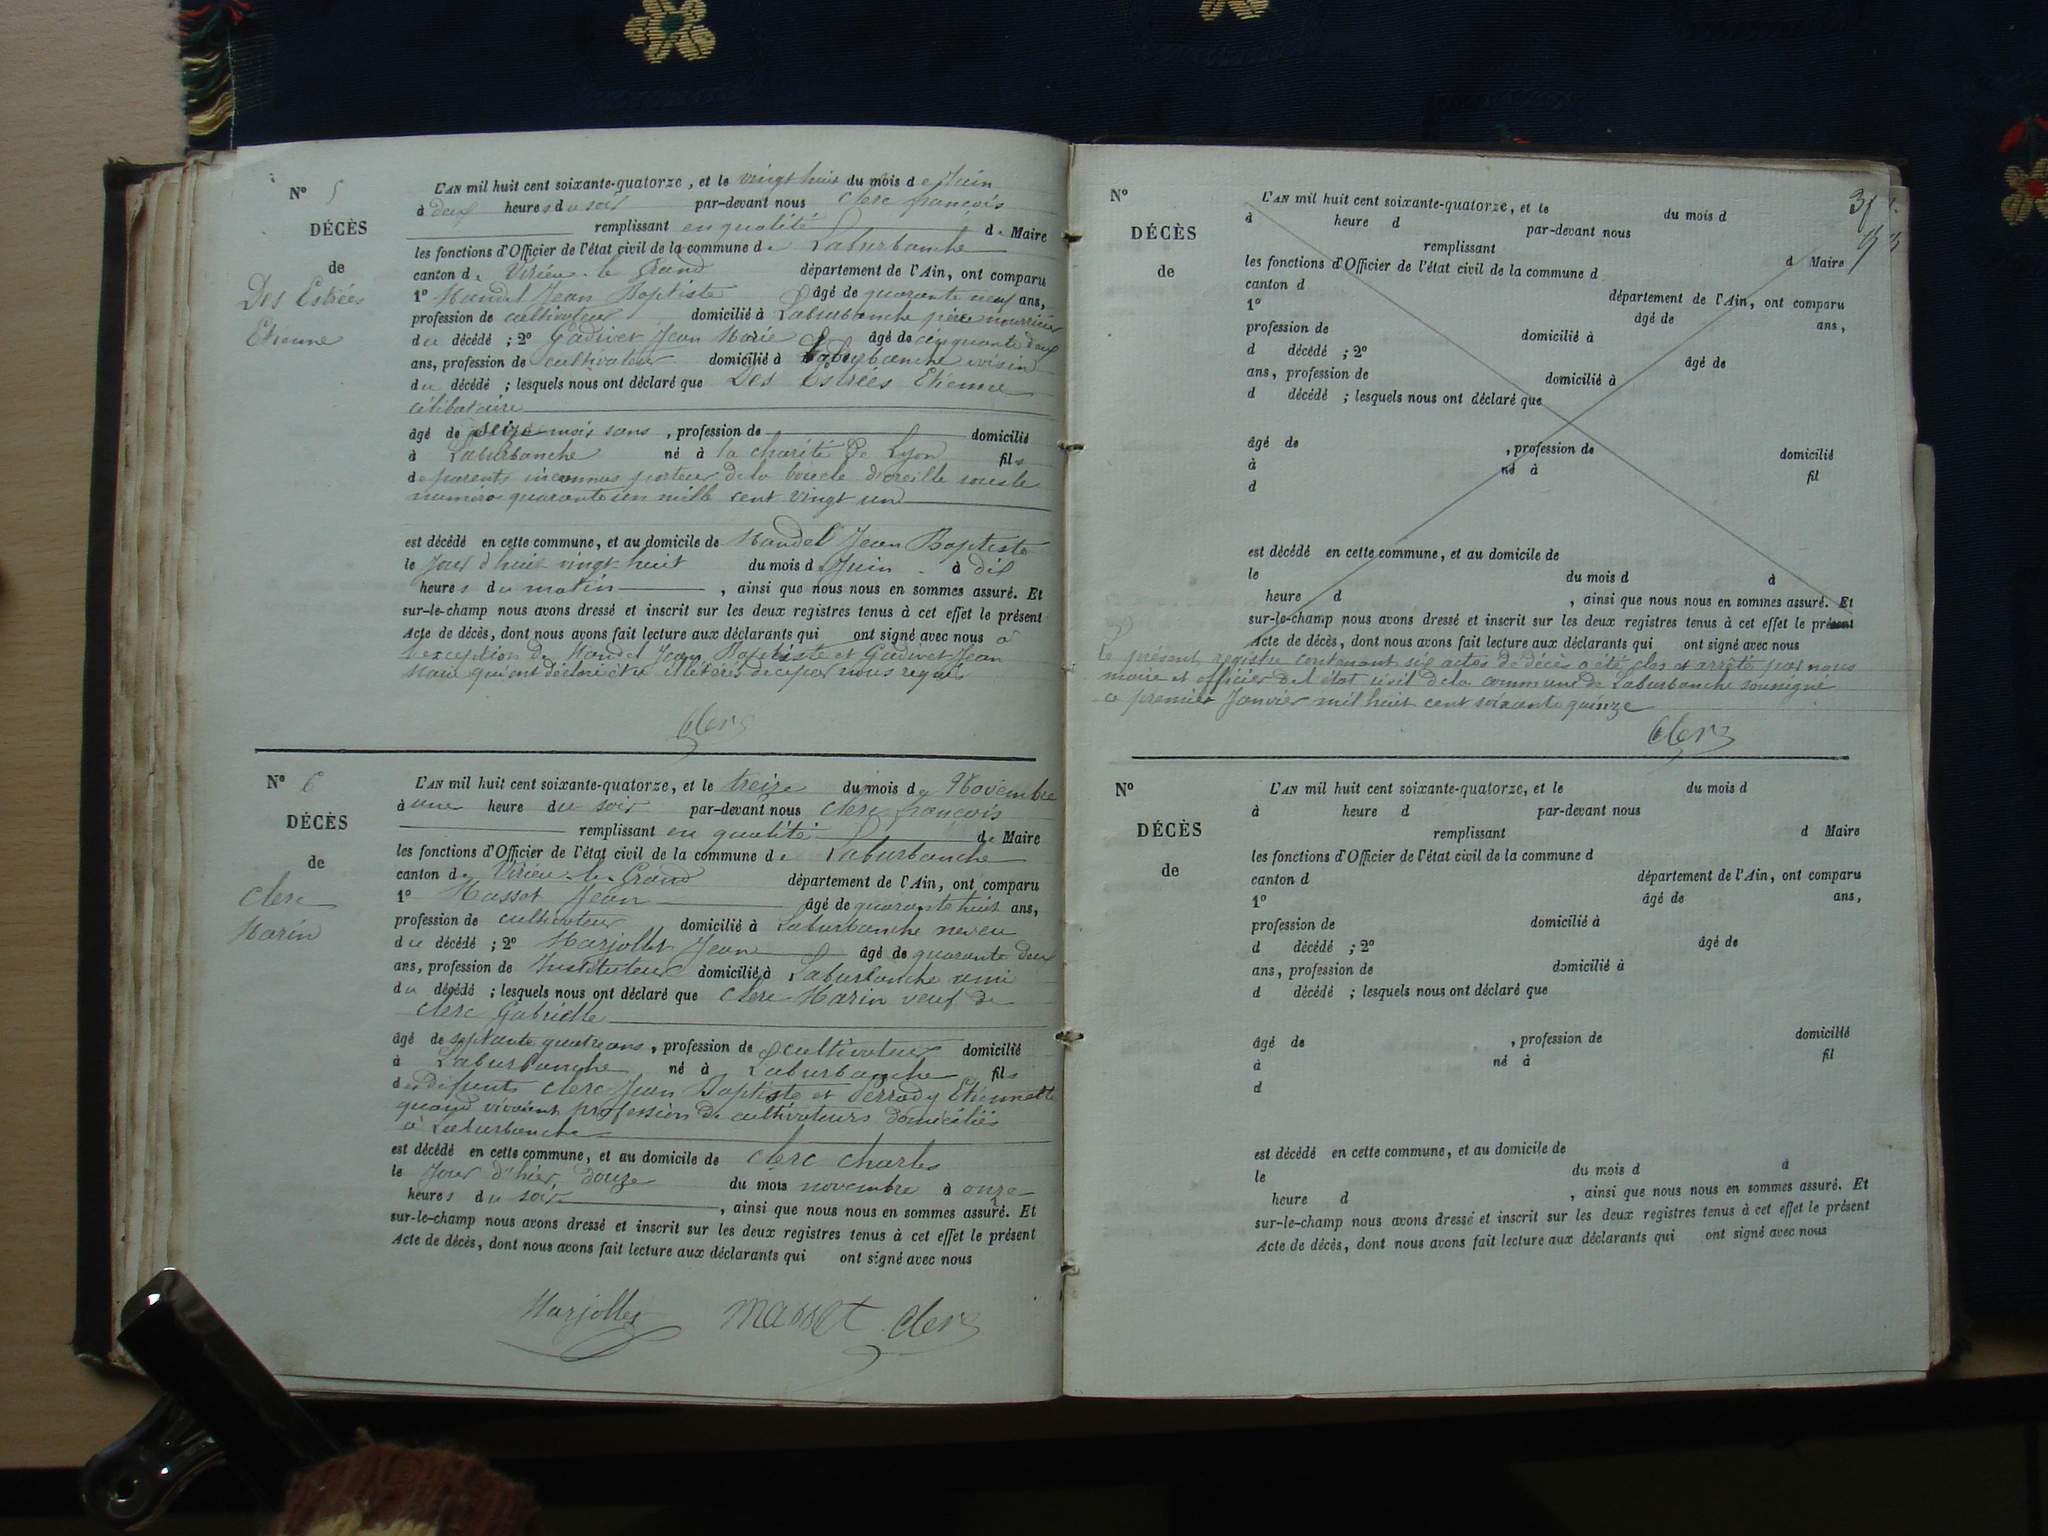 N° 5
DÉCÈS
de
Des Estrées
Etienne
L'AN mil huit cent soixante-quatorze, et le vingt huit du mois de Juin
à deux heures du soir par-devant nous Clerc françois
remplissant en qualité de Maire
les fonctions d'Officier de l'état civil de la commune de Laburbanche
canton de Virieu-le-Grand département de l'Ain, ont comparu
1° Jean Baptiste âgé de quarante neuf ans,
profession de cultivateur domicilié à Laburbanche père nourricier
du décédé ; 2° Gadivet Jean Marie âgé de cinquante deux
ans, profession de cultivateur domicilié à Laburbanche voisin
du décédé ; lesquels nous ont déclaré que Des Estrées Etienne
célibataire
âgé de seize mois sans , profession de domicilié
à Laburbanche né à la charité de Lyon fils
de parents inconnus porteur de la boucle d'oreille sous le
numéro quarante un mille cent vingt un
est décédé en cette commune, et au domicile de Jean Baptiste
le Jour d'hui vingt huit du mois de Juin à dix
heures du matin , ainsi que nous nous en sommes assuré. Et
sur-le-champ nous avons dressé et inscrit sur les deux registres tenus à cet effet le présent
Acte de décès, dont nous avons fait lecture aux déclarants qui ont signé avec nous à
l'exception de Jean Baptiste et Gadivet Jean
Marie qui ont déclaré être illétérés de ce par nous requis
Clerc
N° 6
DÉCÈS
de
Clerc
Marin
L'AN mil huit cent soixante-quatorze, et le treize du mois de Novembre
à une heure du soir par-devant nous Clerc françois
remplissant en qualité de Maire
les fonctions d'Officier de l'état civil de la commune de Laburbanche
canton de Virieu-le-Grand département de l'Ain, ont comparu
1° Masset Jean âgé de quarante huit ans,
profession de cultivateur domicilié à Laburbanche neveu
du décédé ; 2° Marjollet Jean âgé de quarante deux
ans, profession de Instituteur domicilié à Laburbanche ami
du décédé ; lesquels nous ont déclaré que Clerc Marin veuf de
Clerc Gabrielle
âgé de septante quatre ans , profession de cultivateur domicilié
à Laburbanche né à Laburbanche fils
des défunts Clerc Jean Baptiste et Perrody Etiennette
quand vivaient profession de cultivateurs domiciliés
à Laburbanche
est décédé en cette commune, et au domicile de Clerc Charles
le Jour d'hier, douze du mois novembre à onze
heures du soir , ainsi que nous nous en sommes assuré. Et
sur-le-champ nous avons dressé et inscrit sur les deux registres tenus à cet effet le présent
Acte de décès, dont nous avons fait lecture aux déclarants qui ont signé avec nous
Marjollet Masset Clerc
N°
DÉCÈS
de
L'AN mil huit cent soixante-quatorze, et le du mois d
à heure d par-devant nous
remplissant d Maire
les fonctions d'Officier de l'état civil de la commune d
canton d département de l'Ain, ont comparu
1° âgé de ans,
profession de domicilié à
d décédé ; 2° âgé de
ans, profession de domicilié à
d décédé ; lesquels nous ont déclaré que
âgé de , profession de domicilié
à né à fil
d
est décédé en cette commune, et au domicile de
le du mois d à
heure d , ainsi que nous nous en sommes assuré. Et
sur-le-champ nous avons dressé et inscrit sur les deux registres tenus à cet effet le présent
Acte de décès, dont nous avons fait lecture aux déclarants qui ont signé avec nous
Le présent registre contenant six actes de décès a été clos et arrêté par nous
maire et officier de l'état civil de la commune de Laburbanche soussigné
ce premier Janvier mil huit cent soixante quinze
Clerc
N°
DÉCÈS
de
L'AN mil huit cent soixante-quatorze, et le du mois d
à heure d par-devant nous
remplissant d Maire
les fonctions d'Officier de l'état civil de la commune d
canton d département de l'Ain, ont comparu
1° âgé de ans,
profession de domicilié à
d décédé ; 2° âgé de
ans, profession de domicilié à
d décédé ; lesquels nous ont déclaré que
âgé de , profession de domicilié
à né à fil
d
est décédé en cette commune, et au domicile de
le du mois d à
heure d , ainsi que nous nous en sommes assuré. Et
sur-le-champ nous avons dressé et inscrit sur les deux registres tenus à cet effet le présent
Acte de décès, dont nous avons fait lecture aux déclarants qui ont signé avec nous